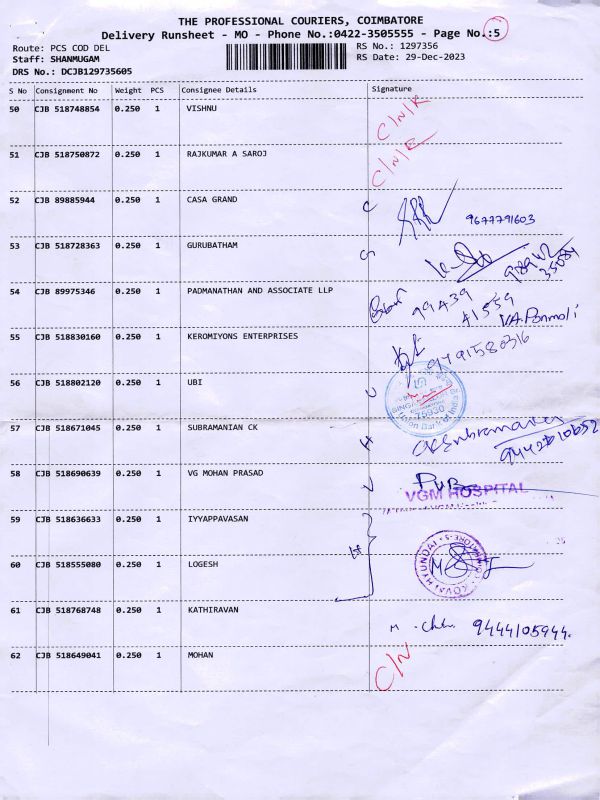 THE PROFESSIONAL COURIERS, COIMBATORE
Delivery Runsheet - MO - Phone No.:0422-3505555 - Page No.:5
Route: PCS COD DEL
RS No.: 1297356
Staff: SHANMUGAM
RS Date: 29-Dec-2023
DRS No.: DCJB129735605
S No Consignment No Weight PCS Consignee Details Signature
50 CJB 518748854 0.250 1 VISHNU C/N/R
51 CJB 518750872 0.250 1 RAJKUMAR A SAROJ C/N/E
52 CJB 89885944 0.250 1 CASA GRAND 9677791603
53 CJB 518728363 0.250 1 GURUBATHAM
54 CJB 89975346 0.250 1 PADMANATHAN AND ASSOCIATE LLP 99439 41559 V.A.Ponmoli
55 CJB 518830160 0.250 1 KEROMIYONS ENTERPRISES
56 CJB 518802120 0.250 1 UBI 75930 Union Bank of India
57 CJB 518671045 0.250 1 SUBRAMANIAN CK
58 CJB 518690639 0.250 1 VG MOHAN PRASAD VGM HOSPITAL
59 CJB 518636633 0.250 1 IYYAPPAVASAN
60 CJB 518555080 0.250 1 LOGESH KOVAI HYUNDAI COIMBATORE
61 CJB 518768748 0.250 1 KATHIRAVAN 9444105944.
62 CJB 518649041 0.250 1 MOHAN C/N